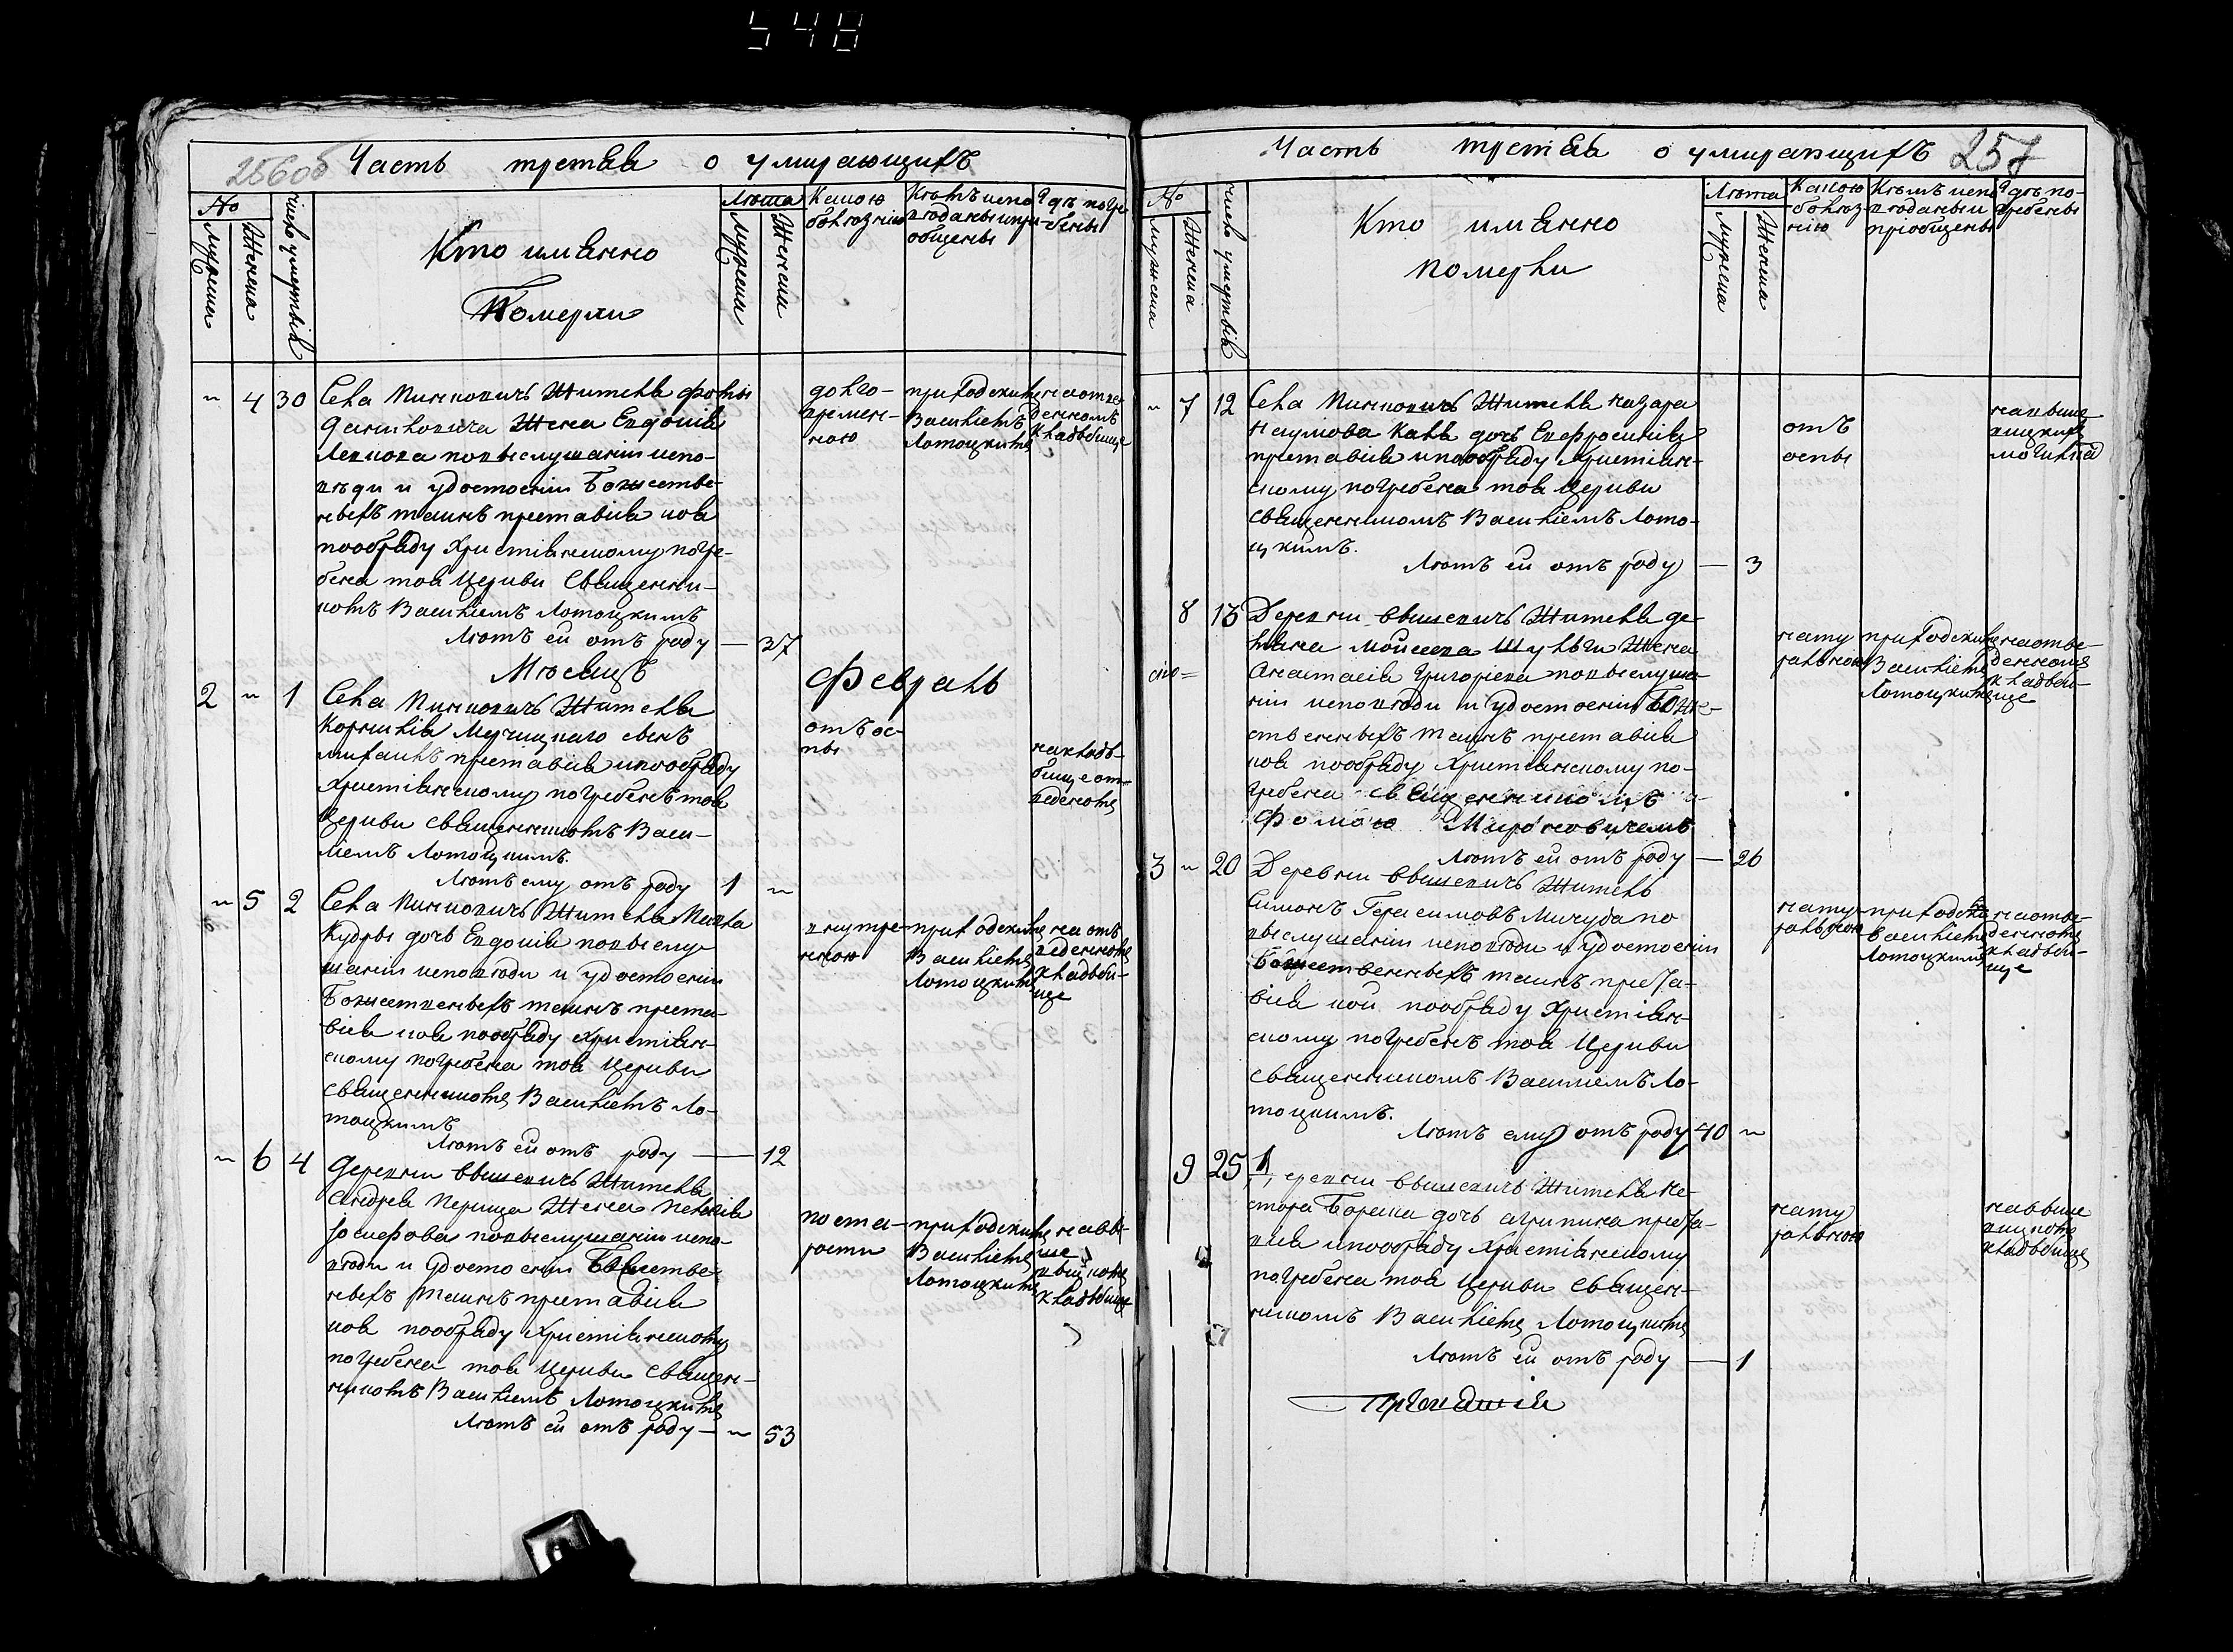 548
256об Часть третяя о умирающихъ
No
Мужеска
Женска
Число умертвія
Кто имянно
Померли
Лѣта
Мужески
Женски
Какою
болѣзнію
Кѣмъ испо
вѣдованы и прі
общены
Гдѣ погре
бены
~ 4 30
Села Минковичъ Жителя Фомы
Данилювича Жена Евдокія
Левкова по выслушаніи испо-
вѣди и удостоеніи Божестве-
ныхъ таинъ преставися коя
по обряду Христіянскому погре-
бена тоя Церкви Священни-
комъ Василіемъ Лотоцкимъ
Лѣтъ ей отъ роду — 37
долго-
времен-
ною
приходскимъ
Василіемъ
Лотоцкимъ
на отве-
денномъ
кладбище
Мѣсяцъ Февраль
2 ~ 1
Села Минковичъ Жителя
Корнилія Мучицкаго сынъ
Михаилъ преставися и по обряду
Христіянскому погребенъ тоя
Церкви священникомъ Васи-
ліемъ Лотоцкимъ.
Лѣтъ ему отъ роду 1 ~
отъ ос-
пы
на кладб-
бище от-
веденомъ
~ 5 2
Села Минковичъ Жителя Михайла
Кудры дочь Евдокія по выслу-
шаніи исповѣди и удостоеніи
Божественныхъ таинъ преста-
вися коя по обряду Христіян-
скому погребена тоя Церкви
священникомъ Василіемъ Ло-
тоцкимъ
Лѣтъ ей отъ роду — 12
внутре-
нною
приходскимъ
Василіемъ
Лотоцкимъ
на отъ
веденномъ
кладби-
ще
~ 6 4
Деревни Вышевичъ Жителя
Андрея Перища Жена Пелагія
Іосифова по выслушаніи испо-
вѣди и удостоеніи Божестве-
ныхъ Таинъ преставися
коя по обряду Христіянскому
погребена тоя Церкви Священ-
никомъ Василіемъ Лотоцкимъ
Лѣтъ ей отъ роду — ~ 53
по ста-
рости
приходскимъ
Василіемъ
Лотоцкимъ
на вы
ше
кладбище
Часть третяя о умирающихъ 257
No
Мужеска
Женска
Число умертвія
Кто имянно
померли
Лѣта
Мужеска
Женска
Какою
болѣз
нію
Кѣмъ испо
вѣдованы и
пріобщены
Гдѣ по-
гребены
~ 7 12
Села Минковичъ Жителя Назара
Наумова дочь Евфросинія
преставися и по обряду Христіян-
скому погребена тоя Церкви
священникомъ Василіемъ Лото-
цкимъ.
Лѣтъ ей отъ роду — 3
отъ
оспы
8 13
Деревни Вышевичъ Жителя
Моисея Жена
Анастасія Григоріева по выслуша-
ніи исповѣди и удостоеніи Боже-
ственныхъ таинъ преставися
коя по обряду Христіянскому по-
гребена священникомъ
Фомою Мироновичемъ
Лѣтъ ей отъ роду — 26
нату
ральною
приходскимъ
Василіемъ
Лотоцкимъ
на отве-
денномъ
кладби-
ще
3 ~ 20
Деревни Вышевичъ Житель
Симонъ Герасимовъ Мичуда по
выслушаніи исповѣди и удостоеніи
Божественныхъ таинъ преста-
вися кой по обряду Христіян-
скому погребенъ тоя Церкви
священникомъ Василіемъ Ло-
тоцкимъ.
Лѣтъ ему отъ роду 40 ~
нату
ральною
приходскимъ
Василіемъ
Лотоцкимъ
на отве-
денномъ
кладби-
ще
9 25
Деревни Вышевичъ Жителя Не-
стора дочь Агрипина преста-
вися и по обряду Христіянскому
погребена тоя Церкви Священ-
никомъ Василіемъ Лотоцкимъ
Лѣтъ ей отъ роду — 1
нату
ральною
на выше
кладбище